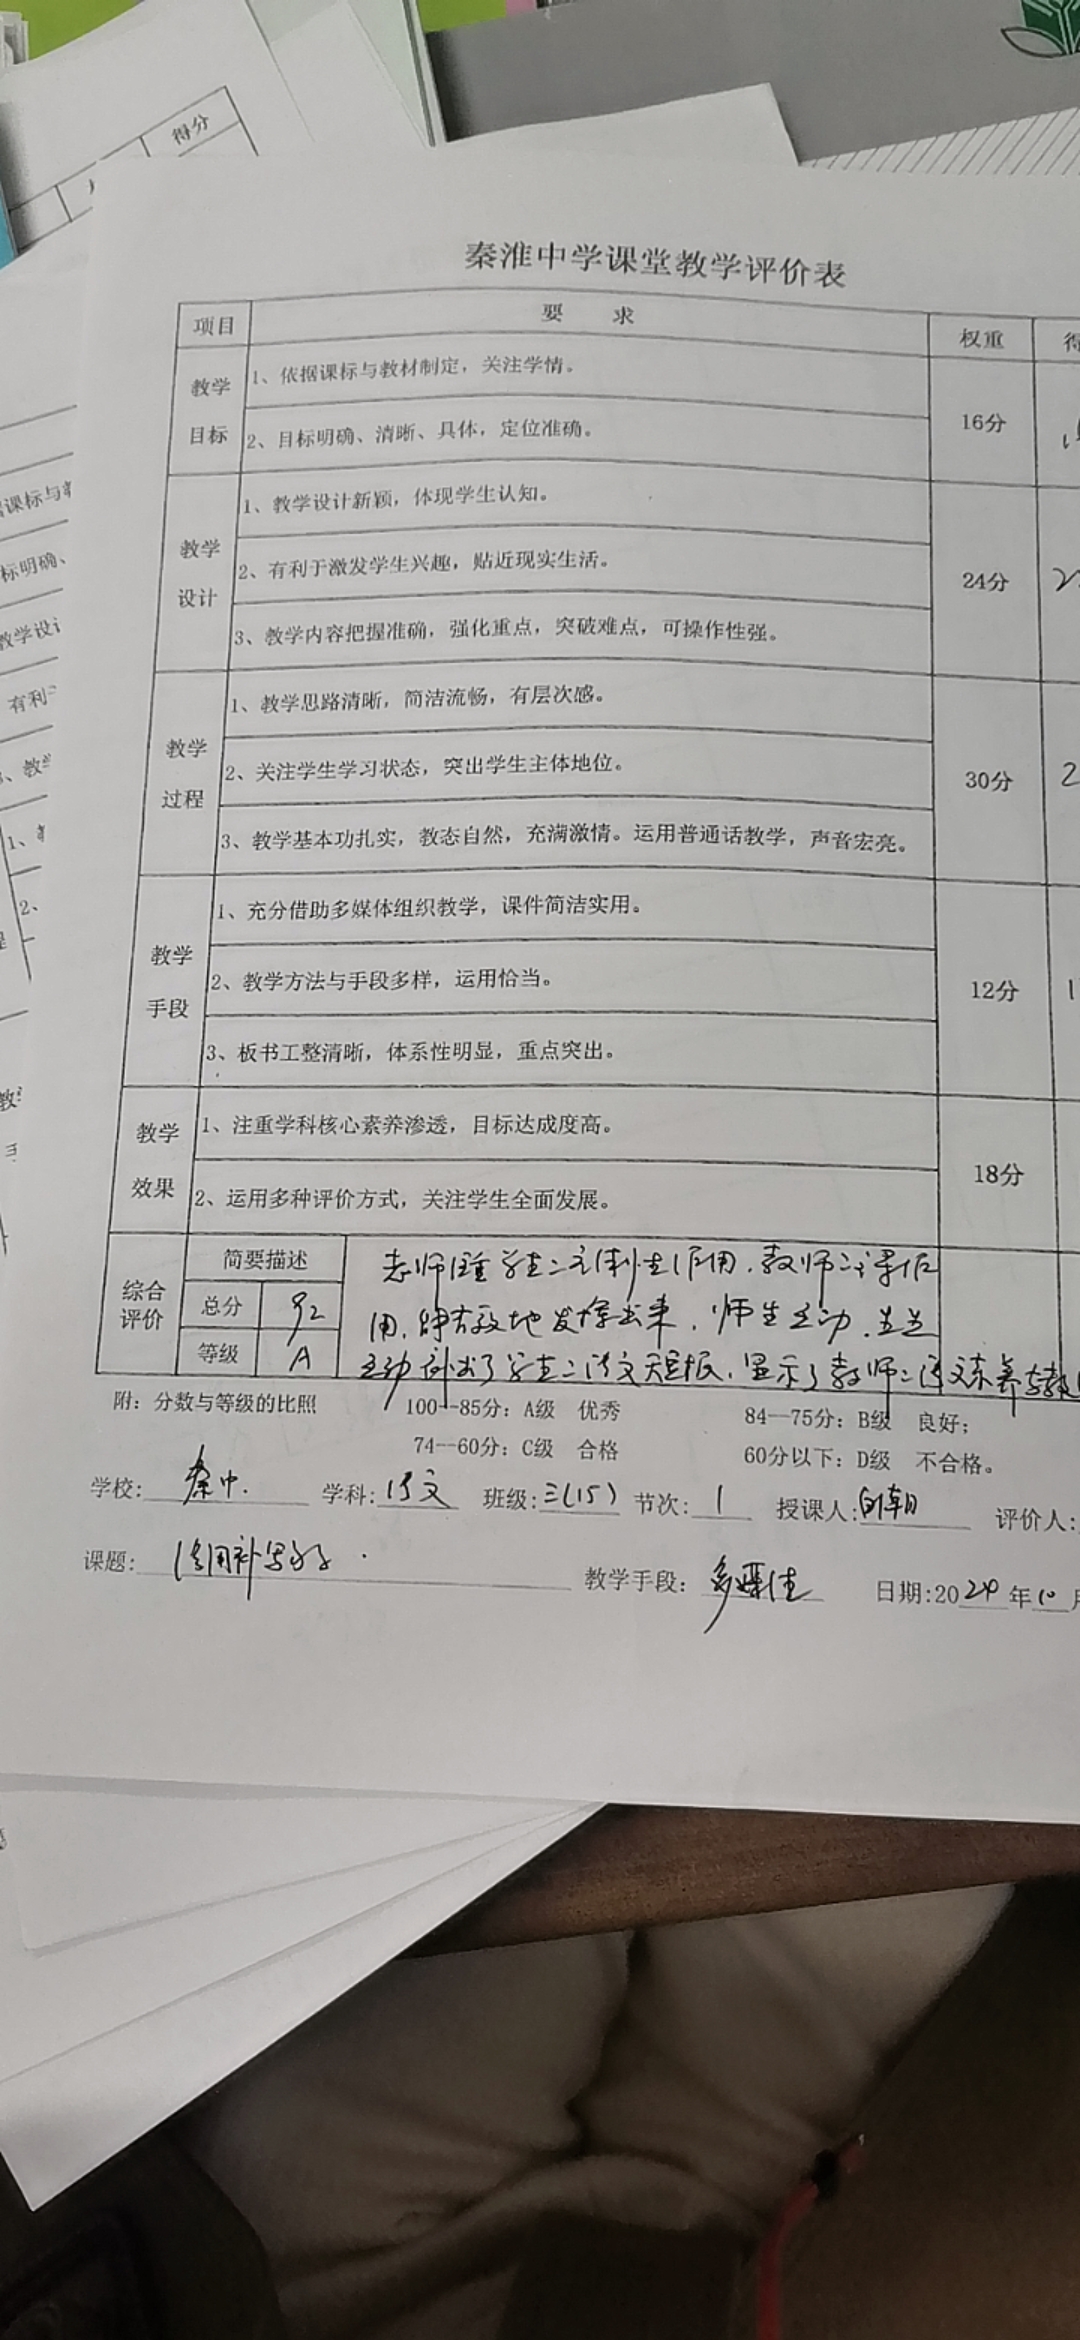 得分
秦淮中学课堂教学评价表
项目 要 求 权重 得
教学目标 1、依据课标与教材制定，关注学情。 16分
2、目标明确、清晰、具体，定位准确。
教学设计 1、教学设计新颖，体现学生认知。 24分
2、有利于激发学生兴趣，贴近现实生活。
3、教学内容把握准确，强化重点，突破难点，可操作性强。
教学过程 1、教学思路清晰，简洁流畅，有层次感。 30分
2、关注学生学习状态，突出学生主体地位。
3、教学基本功扎实，教态自然，充满激情。运用普通话教学，声音宏亮。
教学手段 1、充分借助多媒体组织教学，课件简洁实用。 12分
2、教学方法与手段多样，运用恰当。
3、板书工整清晰，体系性明显，重点突出。
教学效果 1、注重学科核心素养渗透，目标达成度高。 18分
2、运用多种评价方式，关注学生全面发展。
综合评价 简要描述
总分 92
等级 A
用，有效地发挥出来，师生互动，生生
互动
附：分数与等级的比照 100--85分：A级 优秀 84--75分：B级 良好；
74--60分：C级 合格 60分以下：D级 不合格。
学校: 秦中. 学科: 语文 班级: 三(15) 节次: 1 授课人: 评价人:
课题: 教学手段： 多媒体 日期:2024年10月
课标与教
标明确、
教学设计
有利于
、教学
1、教
2、